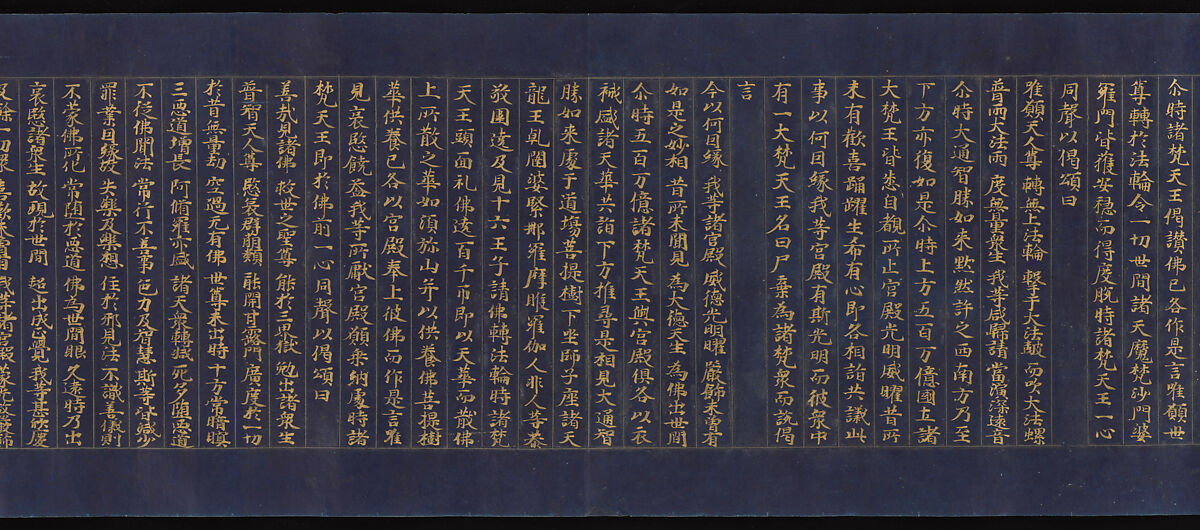 尒時諸梵天王偈讚佛已各作是言唯願世
尊轉於法輪令一切世間諸天魔梵沙門婆
羅門皆獲安穩而得度脫時諸梵天王一心
同聲以偈頌曰
唯願天人尊 轉無上法輪 擊于大法鼓 而吹大法螺
普雨大法雨 度無量衆生 我等咸歸請 當演深遠音
尒時大通智勝如來默然許之西南方乃至
下方亦復如是尒時上方五百万億國土諸
大梵王皆悉自覩所止宮殿光明威曜昔所
未有歡喜踊躍生希有心即各相詣共議此
事以何因緣我等宮殿有斯光明而彼衆中
有一大梵天王名曰尸棄為諸梵衆而說偈
言
今以何因緣 我等諸宮殿 威德光明曜 嚴飾未曾有
如是之妙相 昔所未聞見 為大德天生 為佛出世間
尒時五百万億諸梵天王與宮殿俱各以衣
裓盛諸天華共詣下方推尋是相見大通智
勝如來處于道場菩提樹下坐師子座諸天
龍王乹闥婆緊那羅摩睺羅伽人非人等恭
敬圍遶及見十六王子請佛轉法輪時諸梵
天王頭面礼佛遶百千帀即以天華而散佛
上所散之華如須弥山并以供養佛菩提樹
華供養已各以宮殿奉上彼佛而作是言唯
見哀愍饒益我等所獻宮殿願垂納處時諸
梵天王即於佛前一心同聲以偈頌曰
善哉見諸佛 救世之聖尊 能於三界獄 勉出諸衆生
普智天人尊 愍哀群萌類 能開甘露門 廣度於一切
於昔無量劫 空過无有佛 世尊未出時 十方常暗瞑
三惡道增長 阿脩羅亦盛 諸天衆轉減 死多隨惡道
不從佛聞法 常行不善事 色力及智慧 斯等皆減少
罪業因緣故 失樂及樂想 住於邪見法 不識善儀則
不蒙佛所化 常隨於惡道 佛為世間眼 久遠時乃出
哀愍諸衆生 故現於世間 超出成正覺 我等甚欣慶
及餘一切衆 喜歎未曾有 我等諸宮殿 蒙光故嚴飾